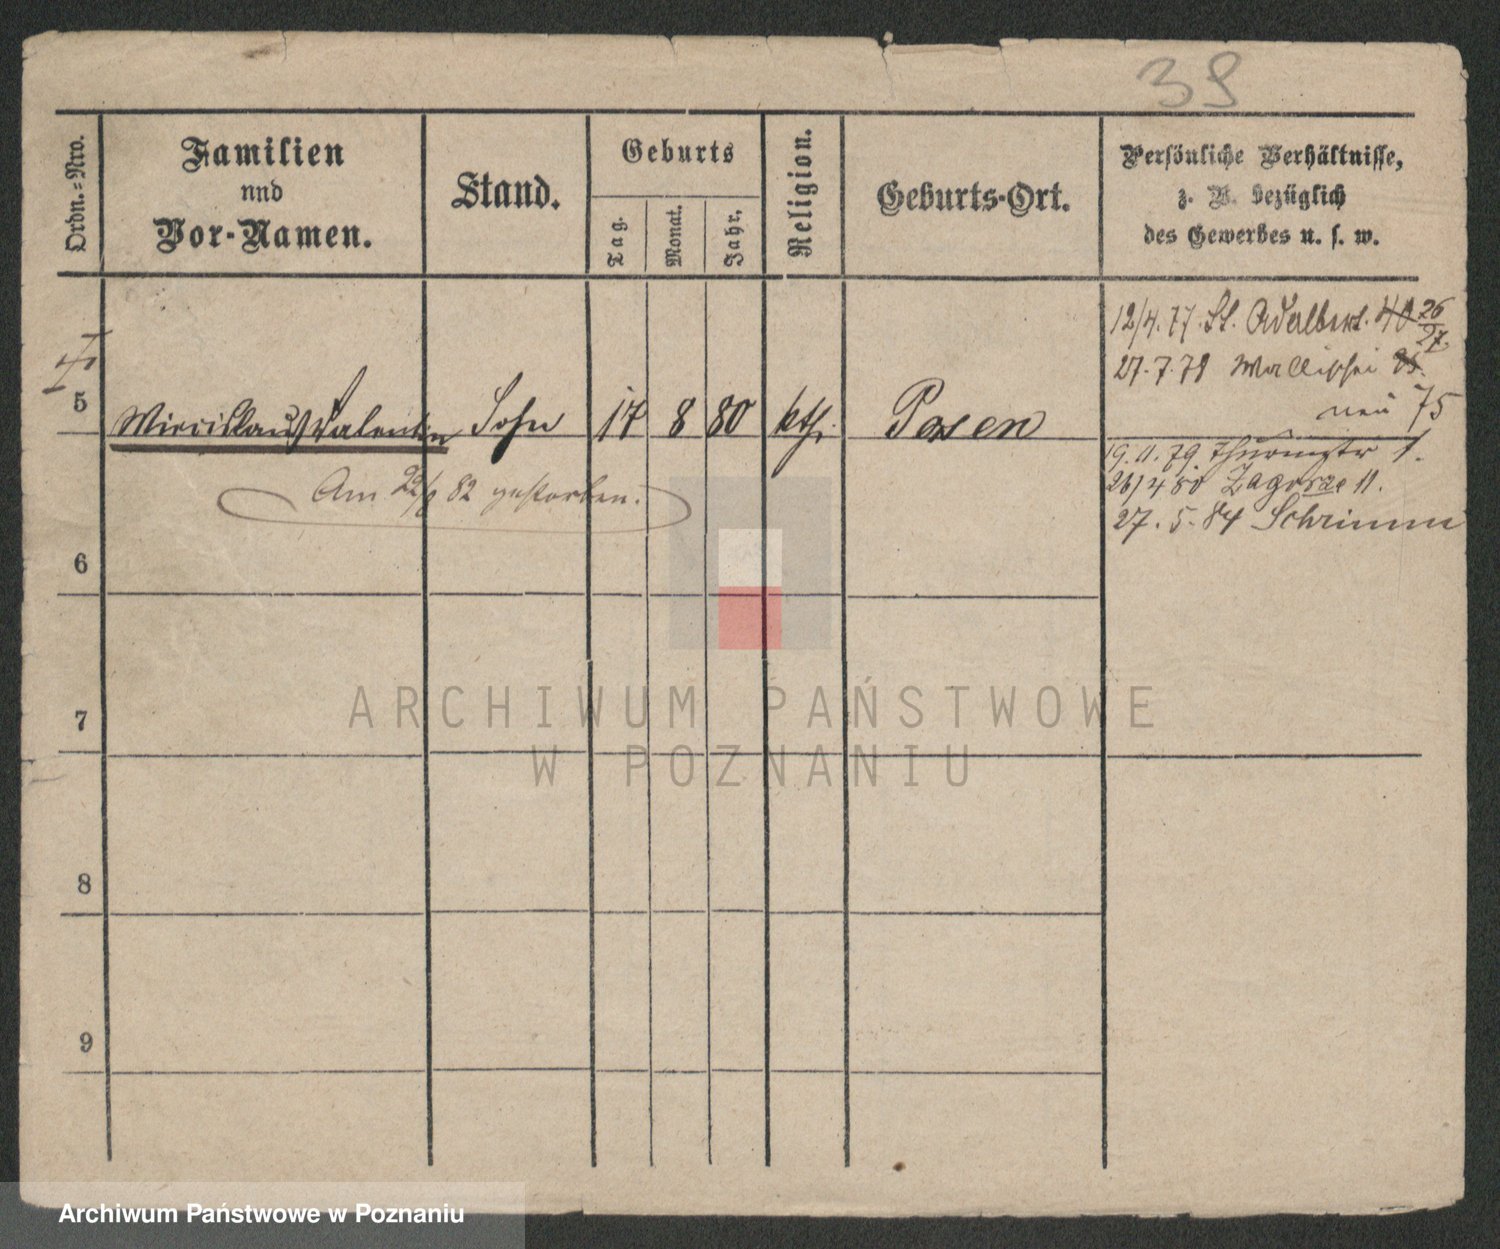 39
Ordn.=Nro.
Familien
und
Vor-Namen.
Stand.
Geburts
Tag.
Monat.
Jahr.
Religion.
Geburts-Ort.
Persönliche Verhältnisse,
z. B. bezüglich
des Gewerbes u. s. w.
12/4. 77. St. Adalbert. 40 26/27.
27. 7. 78 Wallischei
neu 75
5 Valentin Sohn 17 8 80 kth. Posen
19. 11. 79 1.
26/4 80 Zagorze 11.
Am 22/8 82 gestorben.
27. 5. 84 Schrimm
6
7
8
9
ARCHIWUM PAŃSTWOWE
W POZNANIU
Archiwum Państwowe w Poznaniu